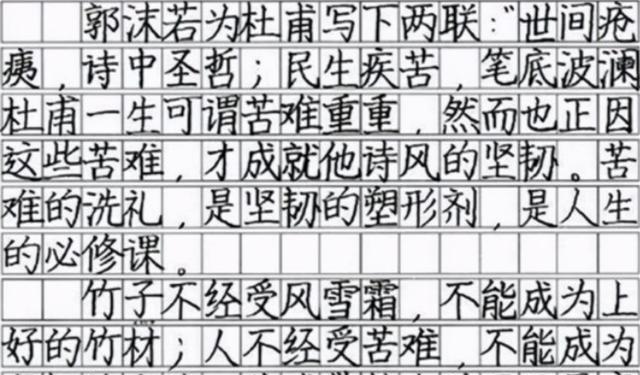 郭沫若为杜甫写下两联:“世间疮
痍,诗中圣哲;民生疾苦,笔底波澜
杜甫一生可谓苦难重重,然而也正因
这些苦难,才成就他诗风的坚韧。苦
难的洗礼,是坚韧的塑形剂,是人生
的必修课。
竹子不经受风雪霜,不能成为上
好的竹材;人不经受苦难,不能成为